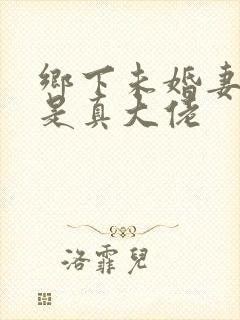 鄉下未婚妻
是真大佬
洛霏兒